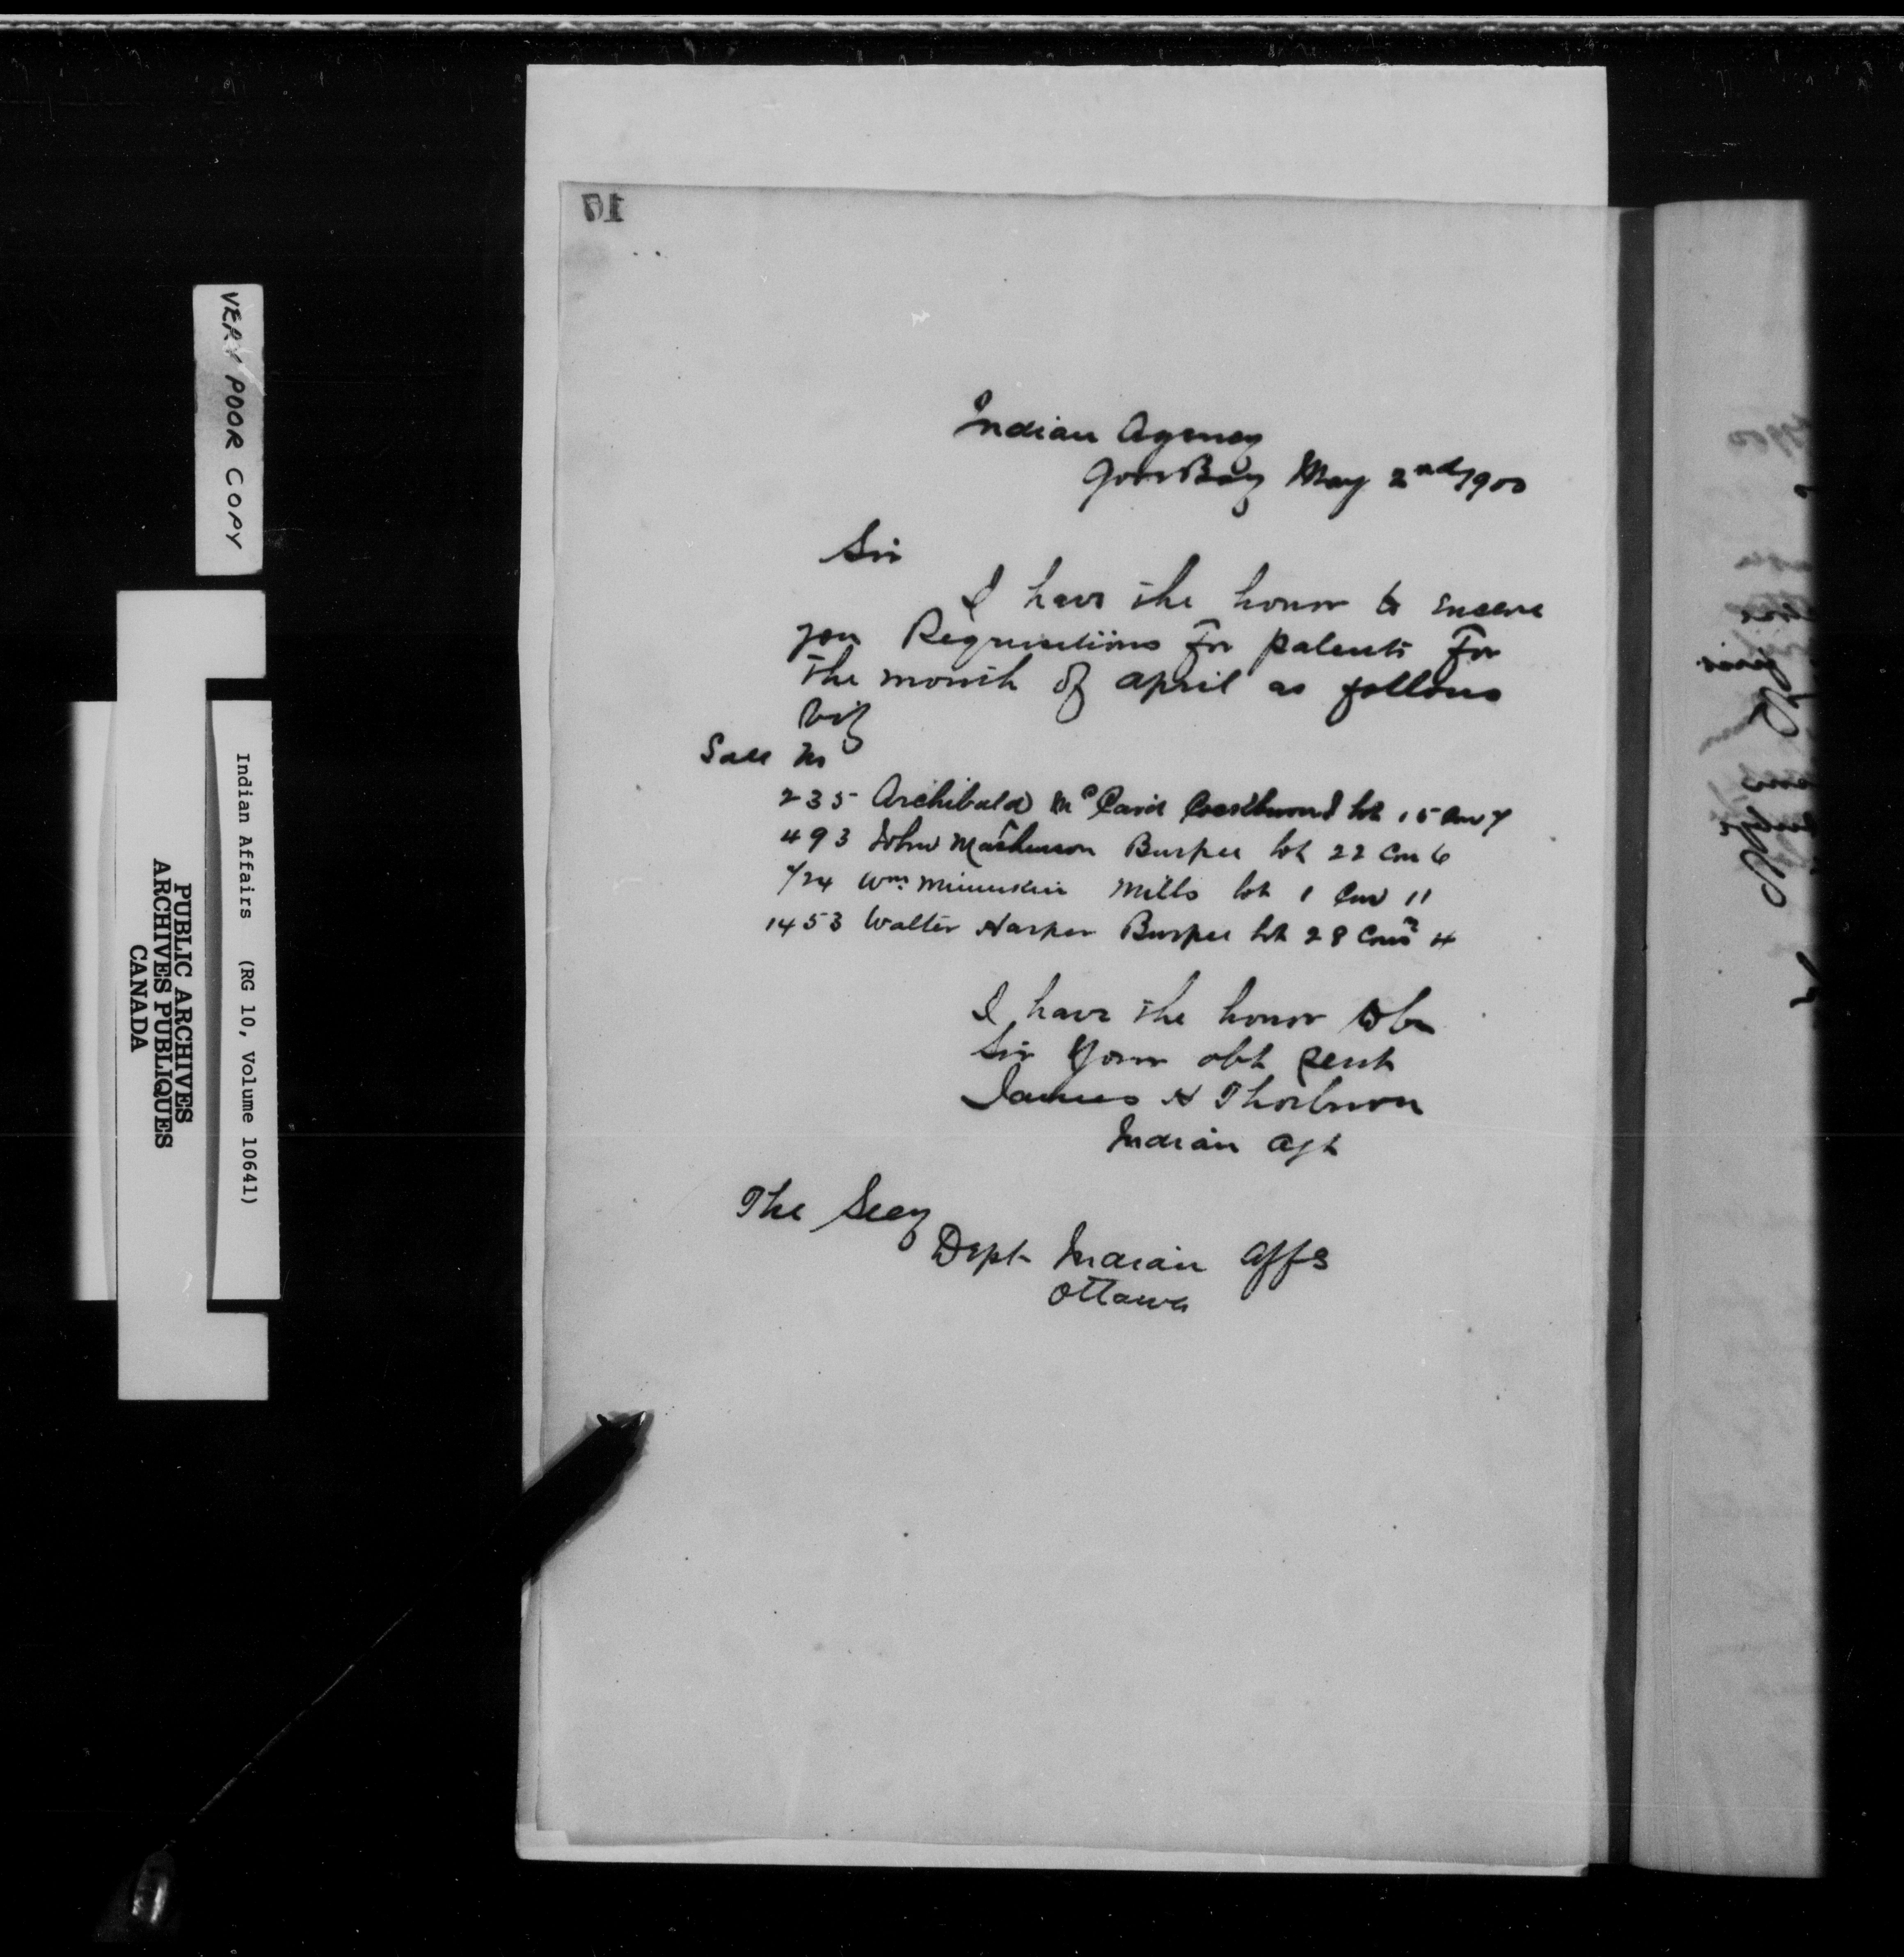 VERY POOR COPY
Indian Affairs (RG 10, Volume 10641)
PUBLIC ARCHIVES
ARCHIVES PUBLIQUES
CANADA
Indian Agency
Gore Bay May 2nd/900
Sir
I have the honor to enclose
you Requisitions for patents for
the month of April as follows
viz
Sale No
235 Archibald Mc lot 15 Con 7
493 John Matheson Burpee lot 22 Con 6
Wm Mills lot 1 Con 11
1453 Walter Harper Burpee lot 28 Con 4
I have the honor to be
Sir Your obt servt
James H Thorburn
Indian Agt
The Secy
Dept Indian Affs
Ottawa